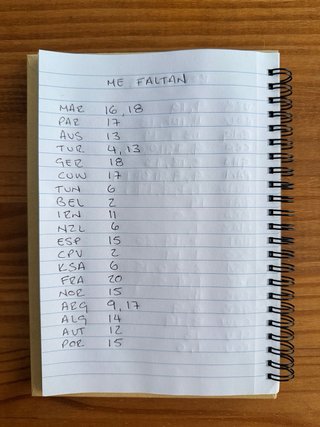 ME FALTAN
MAR 16, 18
PAR 17
AUS 13
TUR 4, 13
GER 18
CUW 17
TUN 6
BEL 2
IRN 11
NZL 6
ESP 15
CPV 2
KSA 6
FRA 20
NOR 15
ARG 9, 17
ALG 14
AUT 12
POR 15